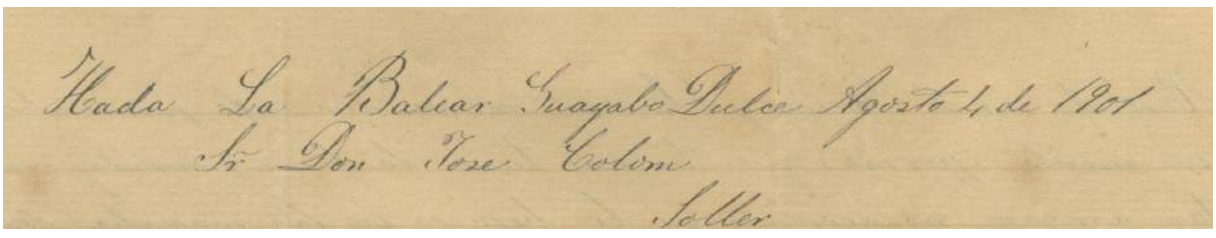 Hada La Balear Guayabo Dulce Agosto 4 de 1901
Sr Don Jose Colom
Soller